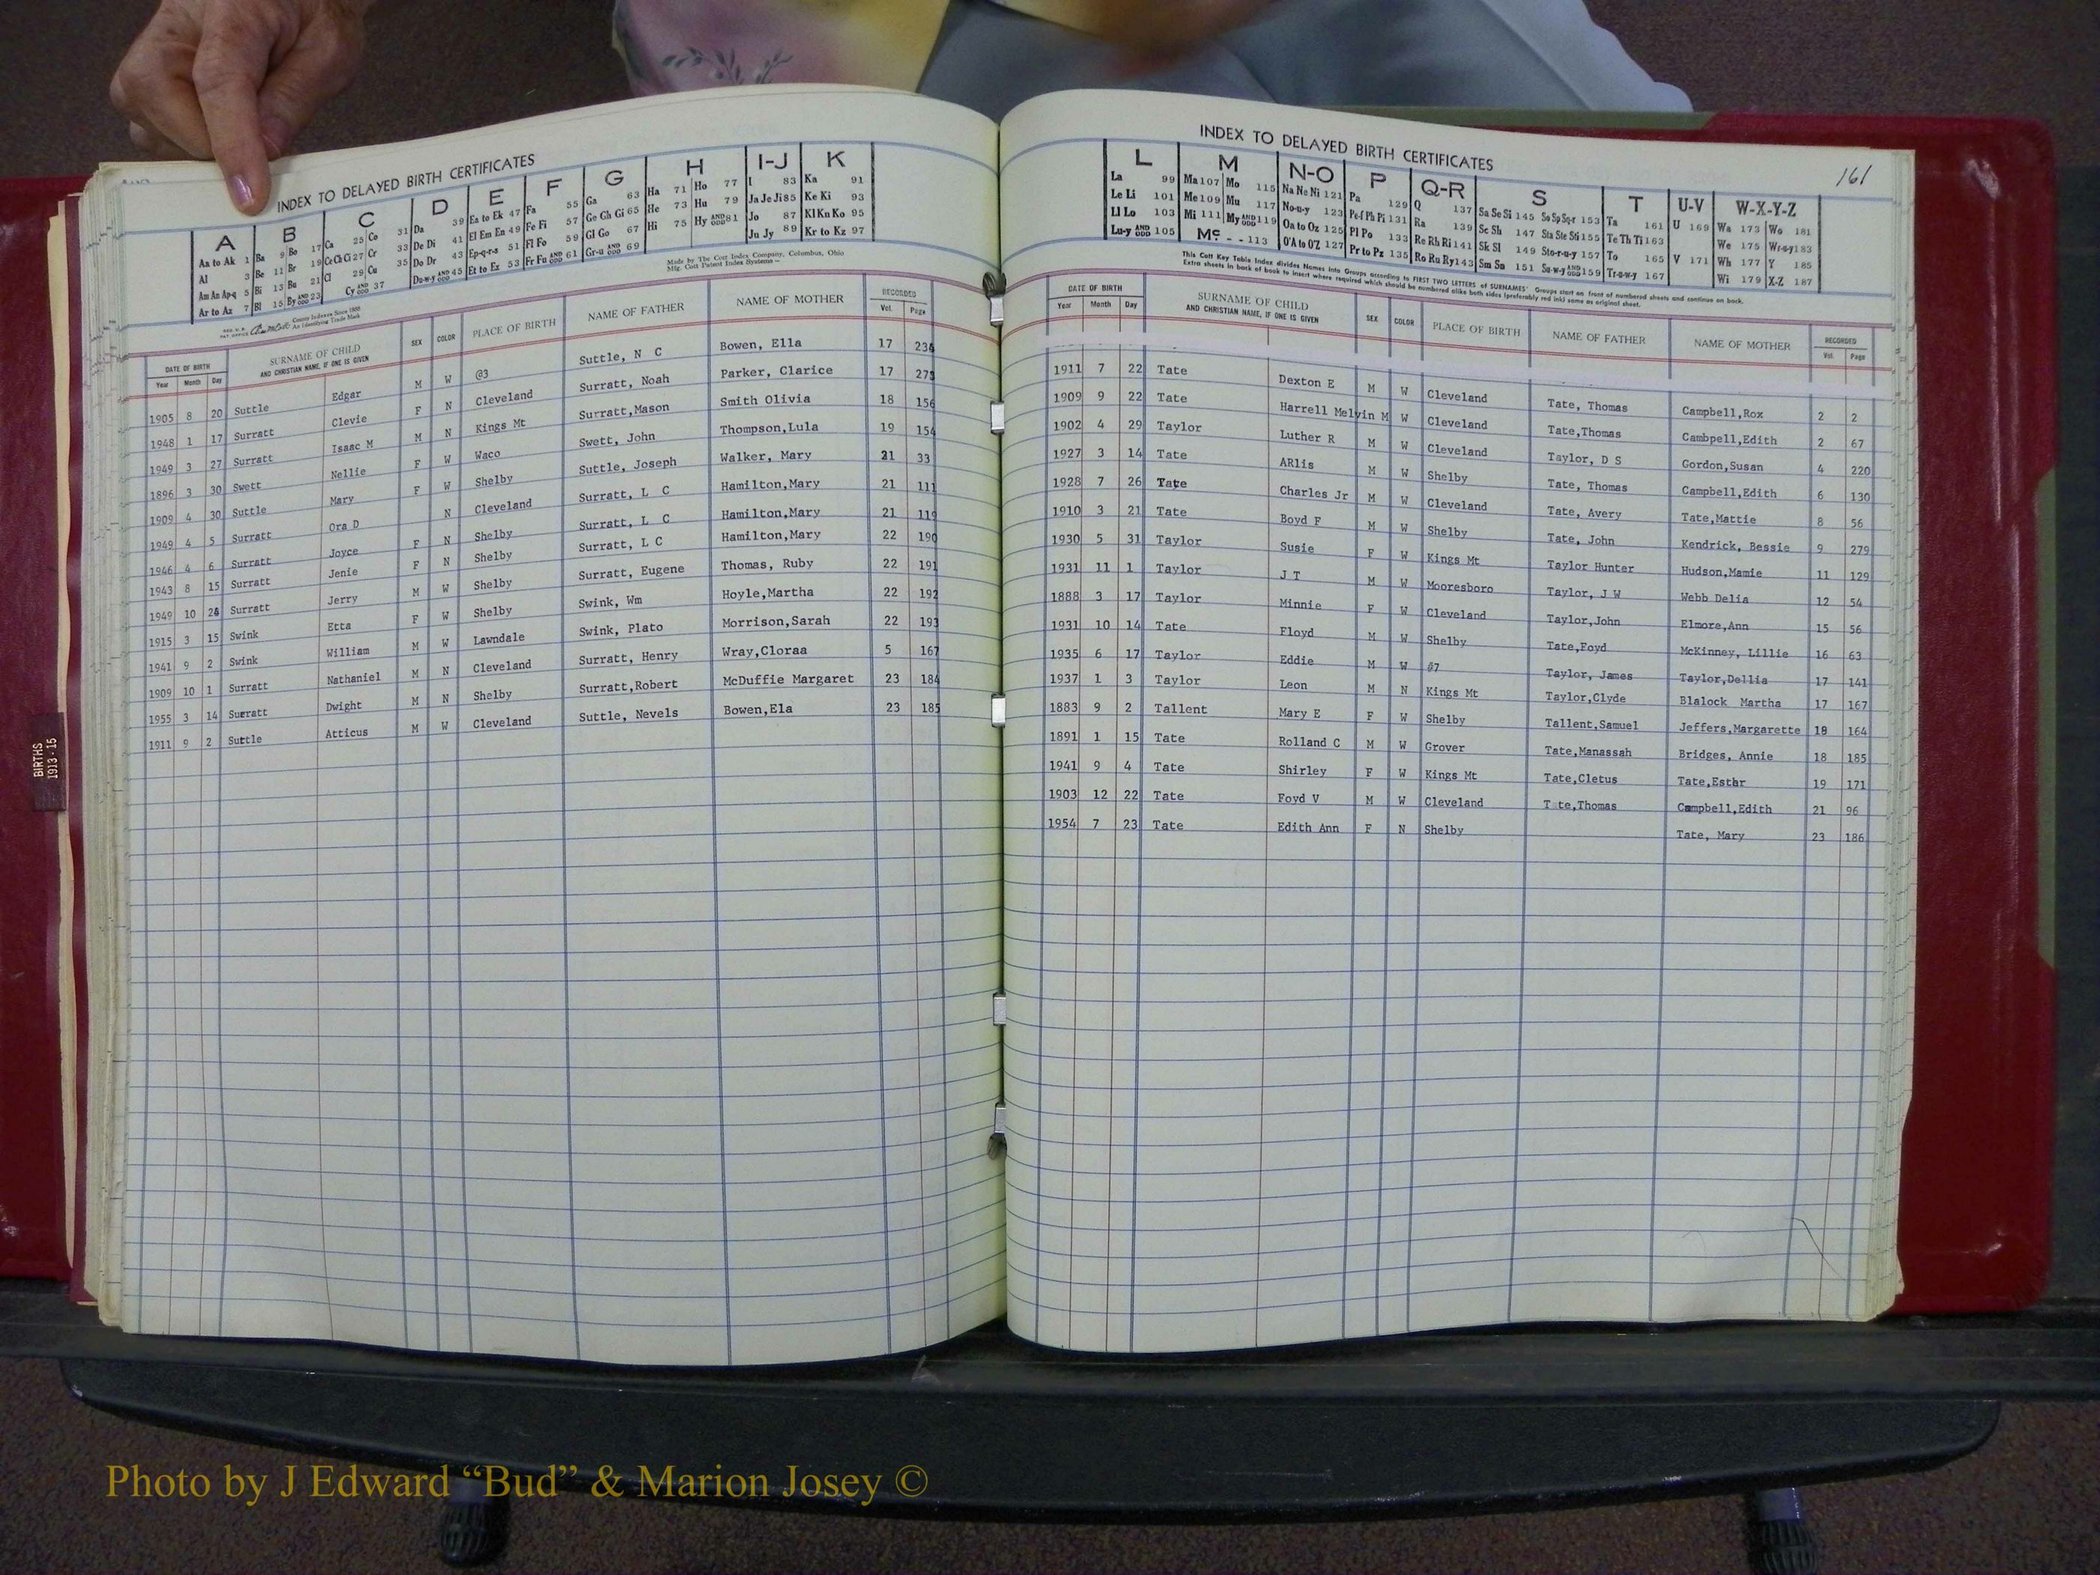 INDEX TO DELAYED BIRTH CERTIFICATES
A B C D E F G H I-J K
Aa to Ak 1 Ba 9 Bo 17 Ca 25 Co 31 Da 39 Ea to Ek 47 Fa 55 Ga 63 Ha 71 Ho 77 I 83 Ka 91
Al 3 Be 11 Br 19 Ce Ch Ci 27 Cr 33 De Di 41 El Em En 49 Fe Fi 57 Ge Gh Gi 65 He 73 Hu 79 Ja Je Ji 85 Ke Ki 93
Am An Ap-q 5 Bi 13 Bu 21 Cl 29 Cu 35 Do Dr 43 Ep-q-r-s 51 Fl Fo 59 Gl Go 67 Hi 75 Hy AND ODD 81 Jo 87 Kl Kn Ko 95
Ar to Az 7 Bl 15 By AND ODD 23 Cy AND ODD 37 Du-w-y AND ODD 45 Et to Ez 53 Fr Fu AND ODD 61 Gr-u AND ODD 69 Ju Jy 89 Kr to Kz 97
County Indexes Since 1888
An Identifying Trade Mark
Made by The Cott Index Company, Columbus, Ohio
Mfg. Cott Patent Index Systems
DATE OF BIRTH SURNAME OF CHILD AND CHRISTIAN NAME, IF ONE IS GIVEN SEX COLOR PLACE OF BIRTH NAME OF FATHER NAME OF MOTHER RECORDED
Year Month Day Vol. Page
1905 8 20 Suttle Edgar M W @3 Suttle, N C Bowen, Ella 17 234
1948 1 17 Surratt Clevie F N Cleveland Surratt, Noah Parker, Clarice 17 273
1949 3 27 Surratt Isaac M M N Kings Mt Surratt,Mason Smith Olivia 18 156
1896 3 30 Swett Nellie F W Waco Swett, John Thompson,Lula 19 154
1909 4 30 Suttle Mary F W Shelby Suttle, Joseph Walker, Mary 21 33
1949 4 5 Surratt Ora D N Cleveland Surratt, L C Hamilton,Mary 21 111
1946 4 6 Surratt Joyce F N Shelby Surratt, L C Hamilton,Mary 21 119
1943 8 15 Surratt Jenie F N Shelby Surratt, L C Hamilton,Mary 22 190
1949 10 Surratt Jerry M W Shelby Surratt, Eugene Thomas, Ruby 22 191
1915 3 15 Swink Etta F W Shelby Swink, Wm Hoyle,Martha 22 192
1941 9 2 Swink William M W Lawndale Swink, Plato Morrison,Sarah 22 193
1909 10 1 Surratt Nathaniel M N Cleveland Surratt, Henry Wray,Cloraa 5 167
1955 3 14 Surratt Dwight M N Shelby Surratt,Robert McDuffie Margaret 23 184
1911 9 2 Suttle Atticus M W Cleveland Suttle, Nevels Bowen,Ela 23 185
BIRTHS
1913-15
INDEX TO DELAYED BIRTH CERTIFICATES
161
L M N-O P Q-R S T U-V W-X-Y-Z
La 99 Ma 107 Mo 115 Na Ne Ni 121 Pa 129 Q 137 Sa Se Si 145 So Sp Sq-r 153 Ta 161 U 169 Wa 173 Wo 181
Le Li 101 Me 109 Mu 117 No-u-y 123 Pe-f Ph Pi 131 Ra 139 Sc Sh 147 Sta Ste Sti 155 Te Th Ti 163 We 175 Wr-u-y 183
Ll Lo 103 Mi 111 My AND ODD 119 Oa to Oz 125 Pl Po 133 Re Rh Ri 141 Sk Sl 149 Sto-r-u-y 157 To 165 V 171 Wh 177 Y 185
Lu-y AND ODD 105 Mc - - 113 O'A to O'Z 127 Pr to Pz 135 Ro Ru Ry 143 Sm Sn 151 Su-w-y AND ODD 159 Tr-u-w-y 167 Wi 179 X-Z 187
This Cott Key Table Index divides Names into Groups according to FIRST TWO LETTERS of SURNAMES' Groups start on front of numbered sheets and continue on back.
Extra sheets in back of book to insert where required which should be numbered alike both sides (preferably red ink) same as original sheet.
DATE OF BIRTH SURNAME OF CHILD AND CHRISTIAN NAME, IF ONE IS GIVEN SEX COLOR PLACE OF BIRTH NAME OF FATHER NAME OF MOTHER RECORDED
Year Month Day Vol. Page
1911 7 22 Tate Dexton E M W Cleveland Tate, Thomas Campbell,Rox 2 2
1909 9 22 Tate Harrell Melvin M W Cleveland Tate,Thomas Cambpell,Edith 2 67
1902 4 29 Taylor Luther R M W Cleveland Taylor, D S Gordon,Susan 4 220
1927 3 14 Tate ARlis M W Shelby Tate, Thomas Campbell,Edith 6 130
1928 7 26 Tate Charles Jr M W Cleveland Tate, Avery Tate,Mattie 8 56
1910 3 21 Tate Boyd F M W Shelby Tate, John Kendrick, Bessie 9 279
1930 5 31 Taylor Susie F W Kings Mt Taylor Hunter Hudson,Mamie 11 129
1931 11 1 Taylor J T M W Mooresboro Taylor, J W Webb Delia 12 54
1888 3 17 Taylor Minnie F W Cleveland Taylor,John Elmore,Ann 15 56
1931 10 14 Tate Floyd M W Shelby Tate,Foyd McKinney, Lillie 16 63
1935 6 17 Taylor Eddie M W #7 Taylor, James Taylor,Dellia 17 141
1937 1 3 Taylor Leon M N Kings Mt Taylor,Clyde Blalock Martha 17 167
1883 9 2 Tallent Mary E F W Shelby Tallent,Samuel Jeffers,Margarette 18 164
1891 1 15 Tate Rolland C M W Grover Tate,Manassah Bridges, Annie 18 185
1941 9 4 Tate Shirley F W Kings Mt Tate,Cletus Tate,Esthr 19 171
1903 12 22 Tate Foyd V M W Cleveland T te,Thomas Campbell,Edith 21 96
1954 7 23 Tate Edith Ann F N Shelby Tate, Mary 23 186
Photo by J Edward “Bud” & Marion Josey ©